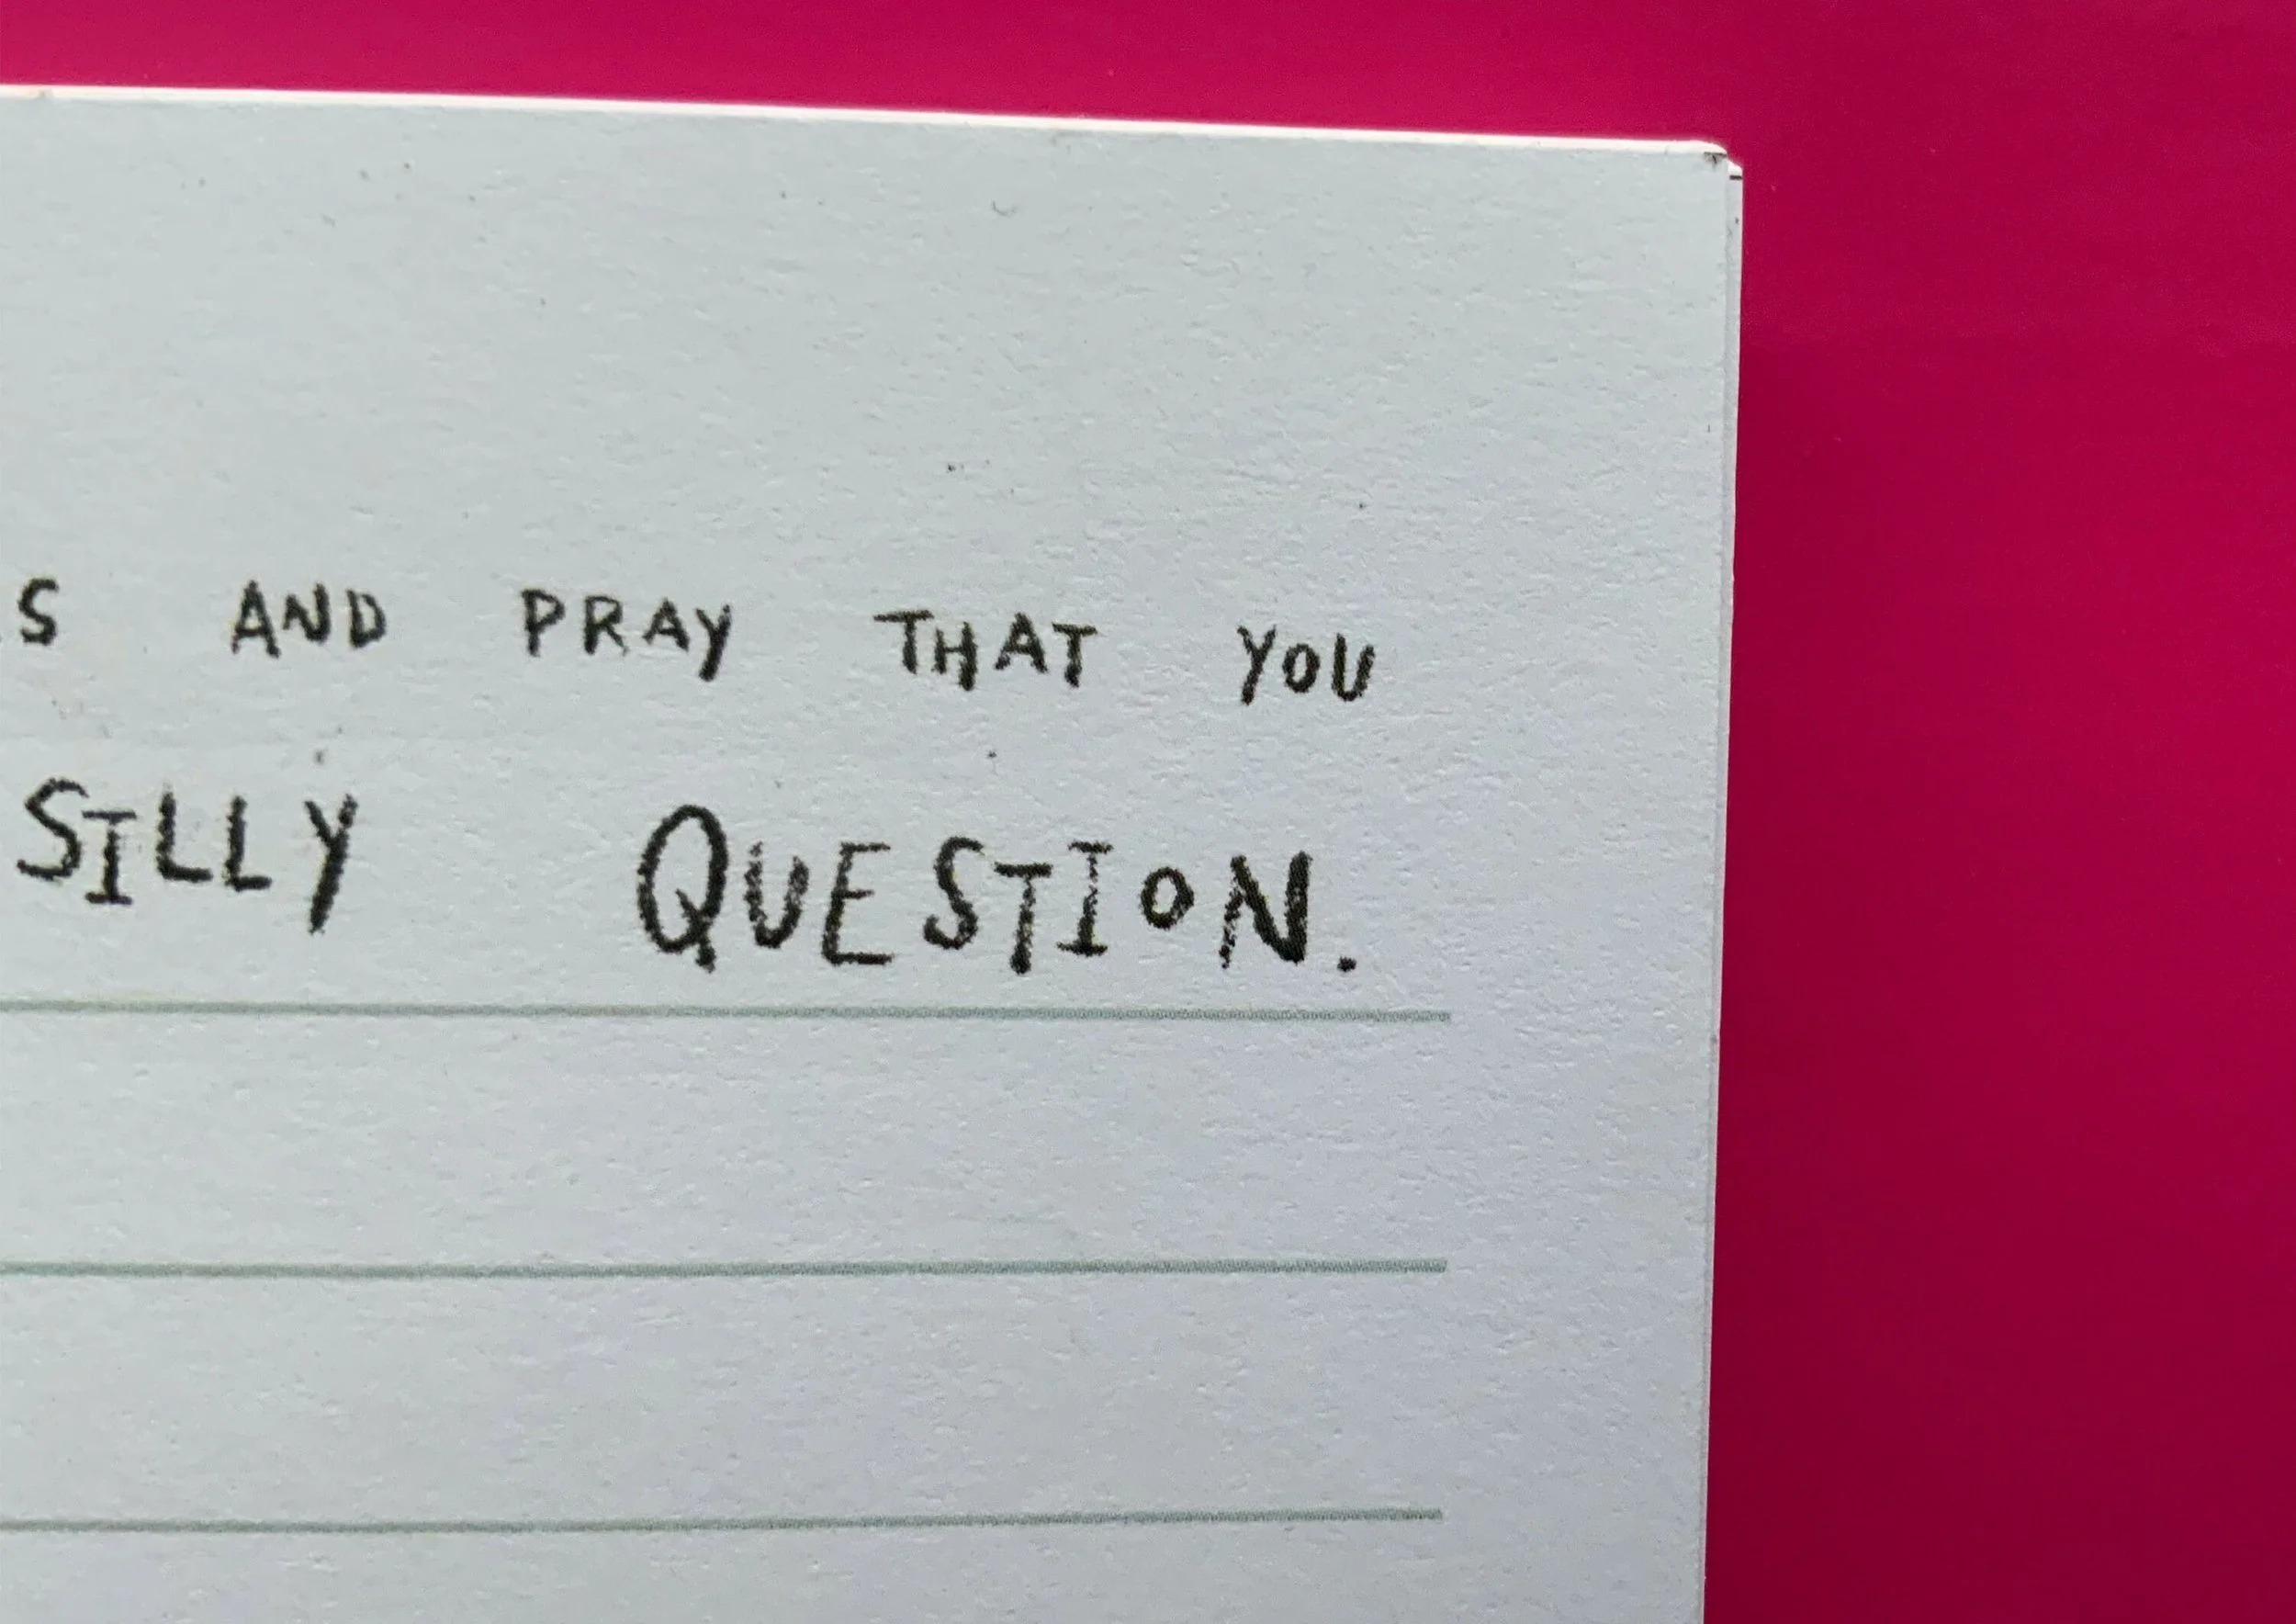 AND PRAY THAT YOU
SILLY QUESTION.